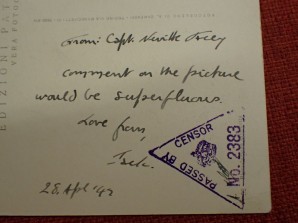 From: Capt. Neville
comment on the picture
would be superfluous.
Love from,
28 April '43
PASSED BY CENSOR
No. 2383
EDIZIONI PAT